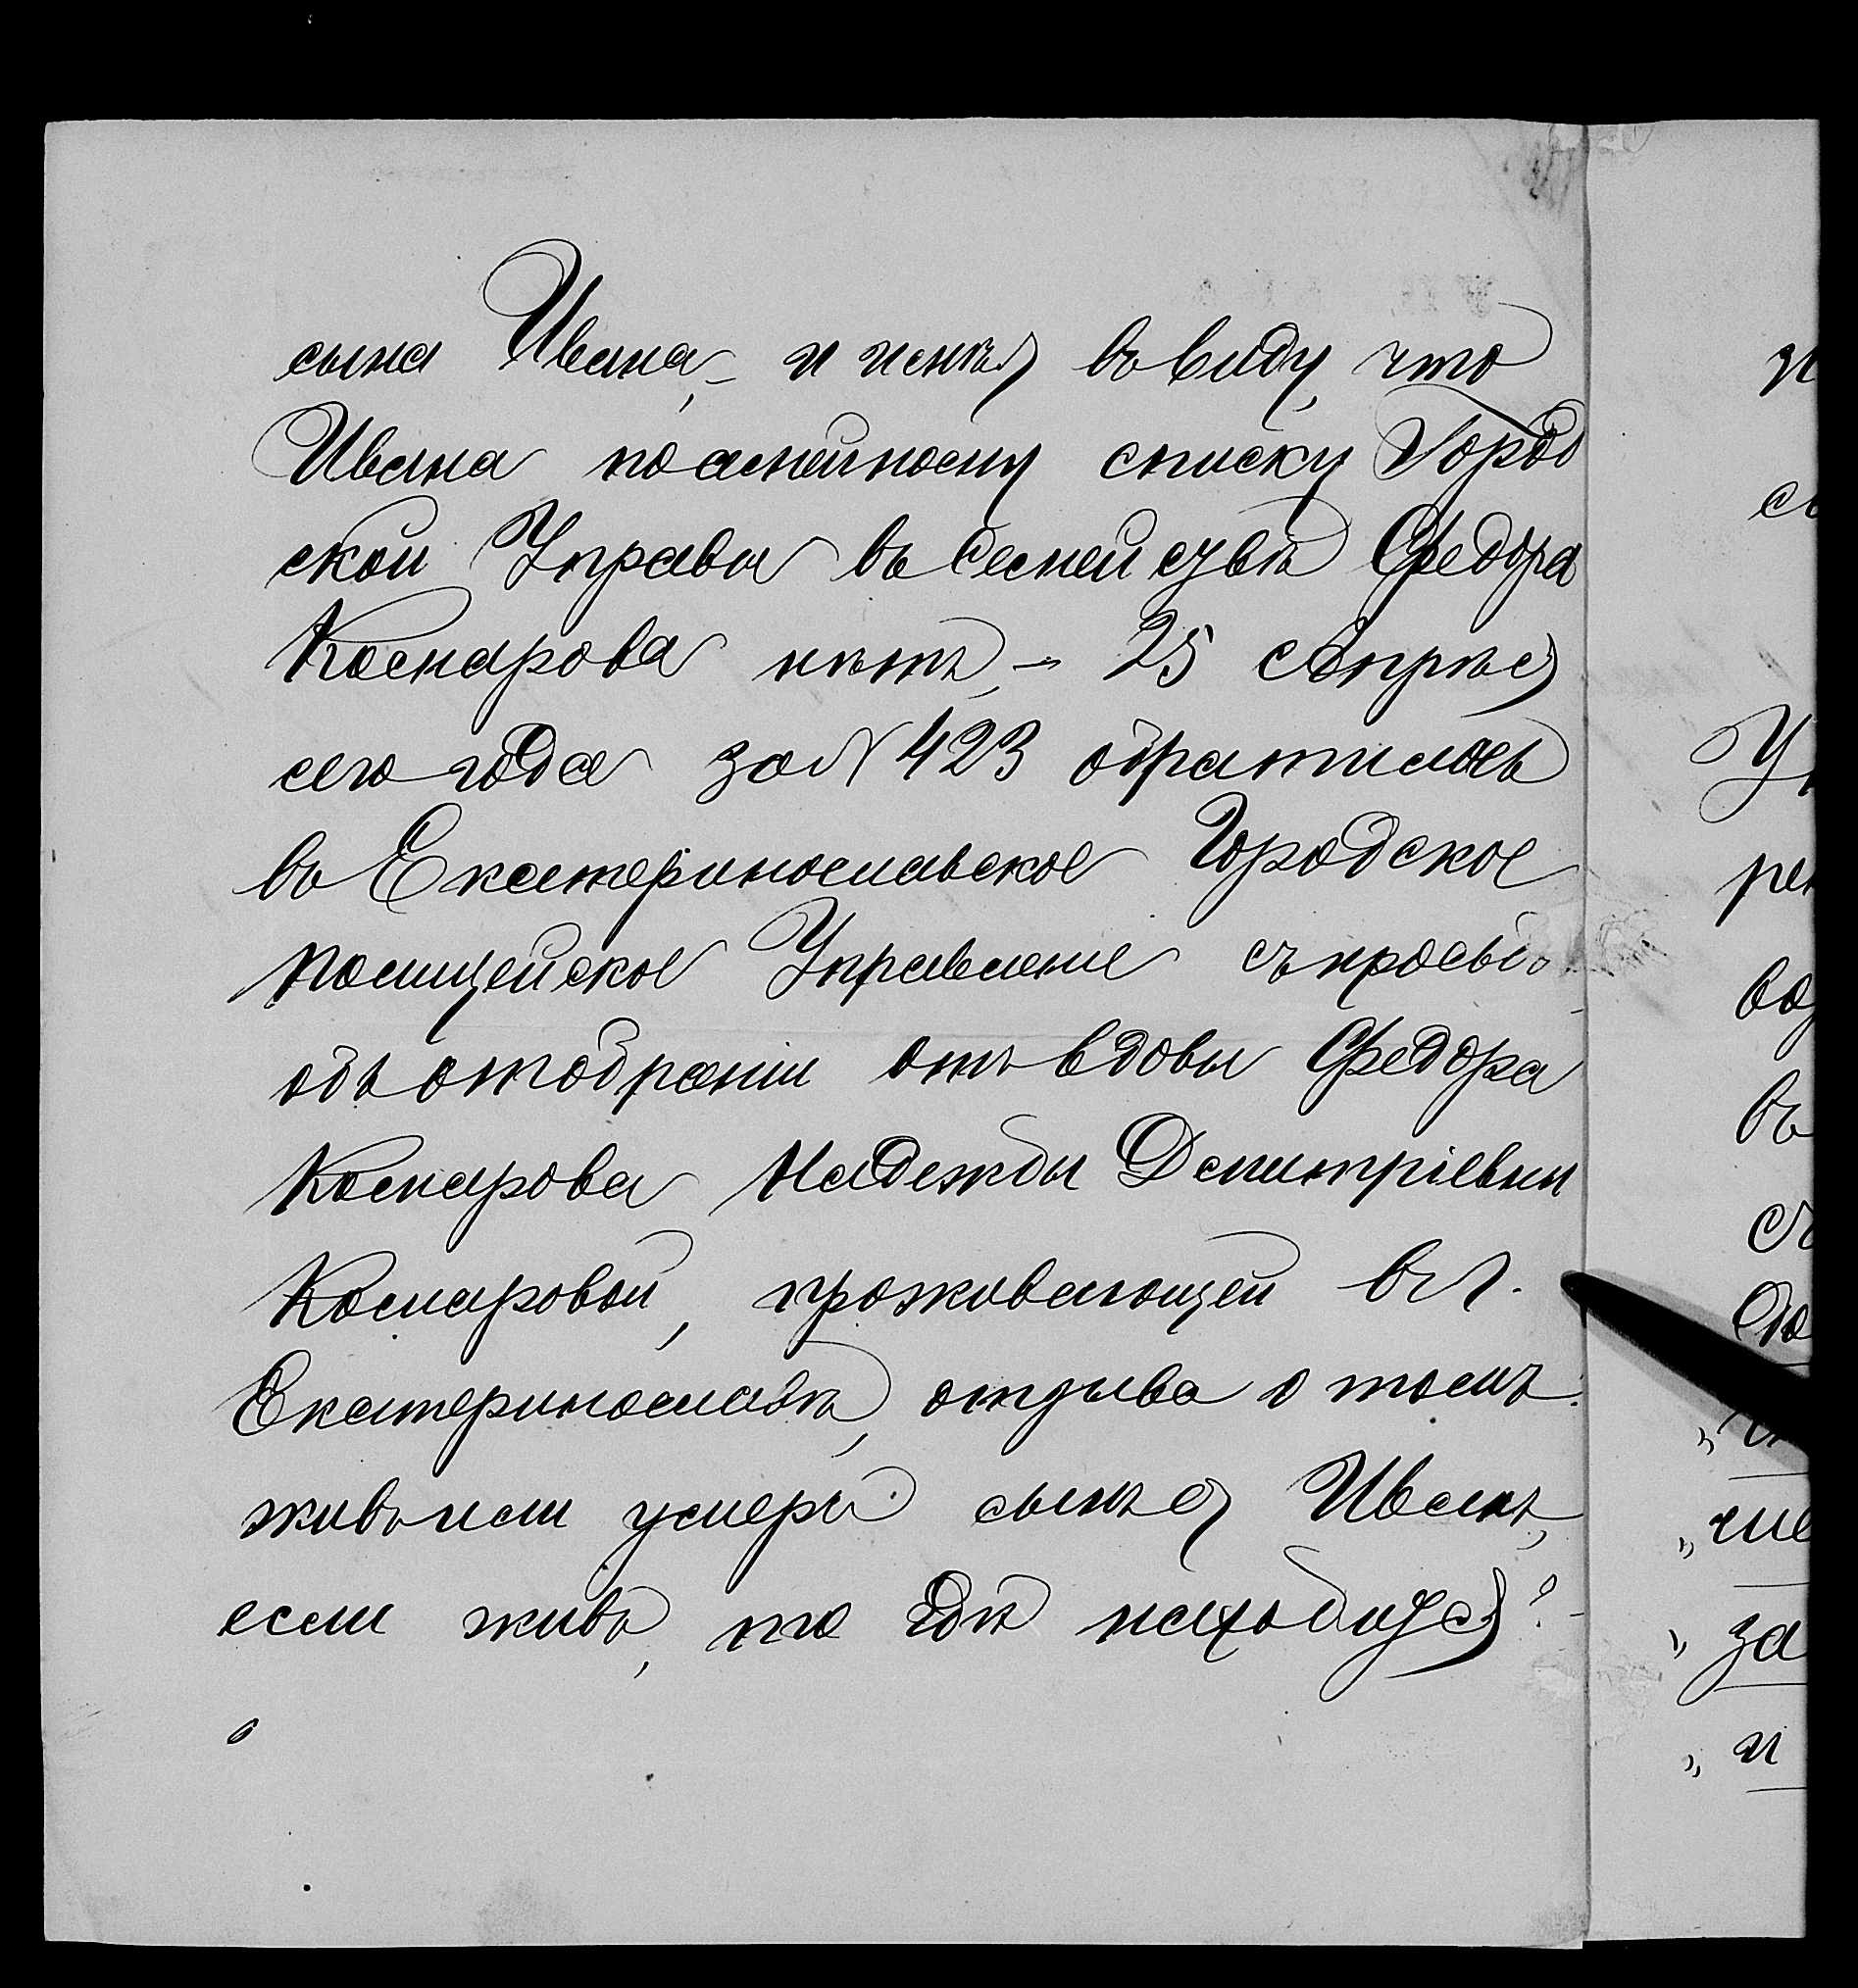 сына Ивана, – и имѣя въ виду, что
Ивана по семейному списку Город
ской Управы въ семействѣ Федора
Комарова нѣтъ, – 25 Апрѣля
сего года за № 423 обратилось
въ Екатеринославское Городское
Полицейское Управленіе съ прось
объ отобраніи отъ вдовы Федора
Комарова Надежды Дмитріевны
Комаровой, проживающей въ г.
Екатеринославѣ, отзыва о томъ:
живъ или умеръ сынъ ея Иванъ,
если живъ, то гдѣ находится?